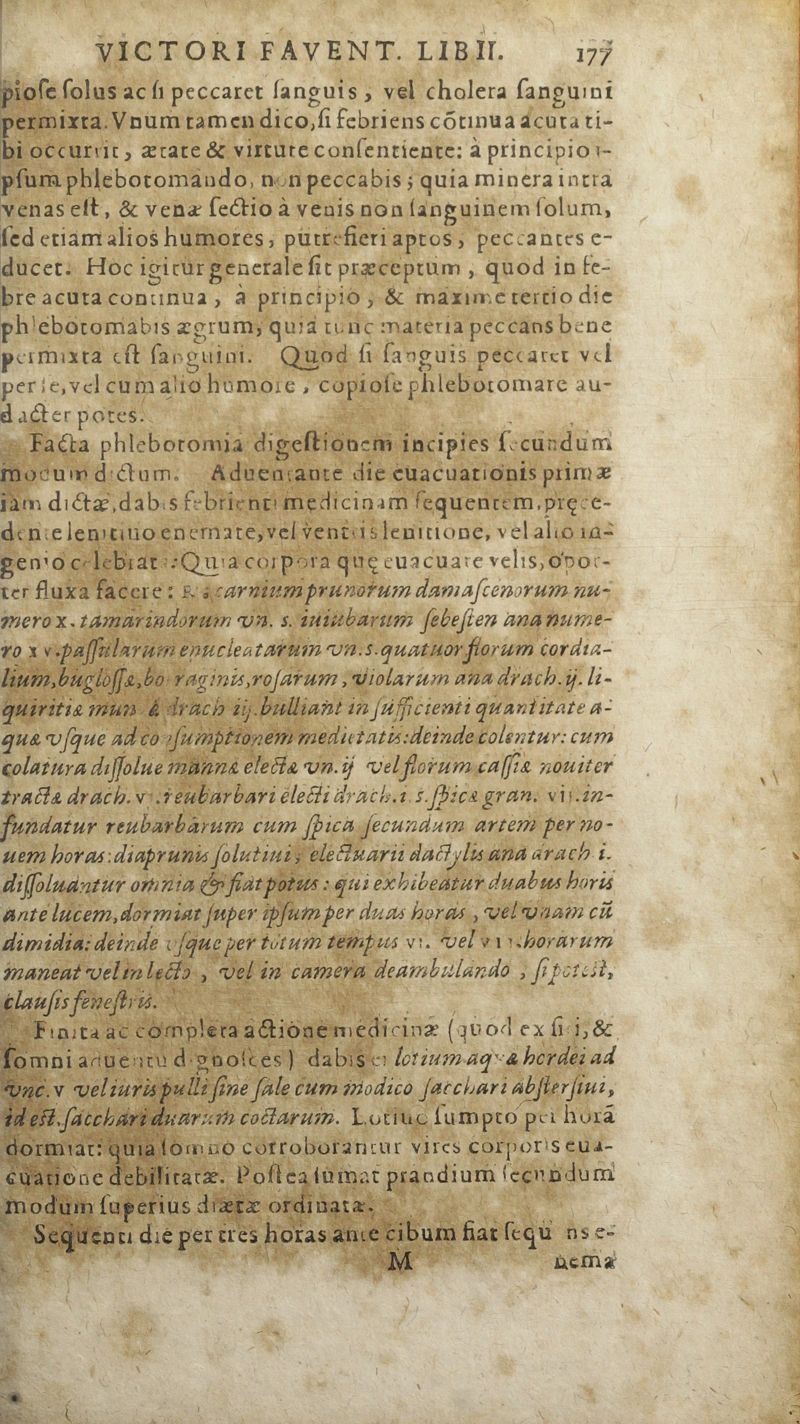 VICTORI FAVENT. LIB II. 177
piose solus ac si peccaret sanguis, vel cholera sanguini
permixta. Vnum tamen dico, si febriens cōtinua acuta ti-
bi occurrit, ætate & virture consentiente: à principio i-
psum phlebotomando, non peccabis; quia minera intra
venas est, & venæ sectio à venis non sanguinem solum,
sed etiam alios humores, putrefieri aptos, peccantes e-
ducet. Hoc igitur generale sit præceptum, quod in fe-
bre acuta continua, à principio, & maxime tertio die
phlebotomabis ægrum, quia tunc materia peccans bene
permixta est sanguini. Quod si sanguis peccaret vel
per se, vel cum alio humore, copiose phlebotomare au-
dacter potes.
Facta phlebotomia digestionem incipies secundum
modum dictum. Aduentante die euacuationis primæ
iam dictæ, dabis febrienti medicinam sequentem, pręce-
dente lenitiuo enemate, vel ventris lenitione, vel alio in-
genio celebrat: Quia corpora quę euacuare velis, opor-
ter fluxa facere: ℞. carnium prunorum damascenorum nu-
mero x. tamarindorum vn. s. iuiubarum sebesten ana nume-
ro x v. passularum enucleatarum vn. s. quatuor florum cordia-
lium, buglossæ, boraginis, rosarum, violarum ana drach. ij. li-
quiritiæ mun drach iij. bulliant in sufficienti quantitate a-
quæ vsque ad consumptionem medietatis: deinde colentur: cum
colatura dissolue mannæ electæ vn. ij vel florum cassiæ nouiter
tractæ drach. v. reubarbari electi drach. i. s. spicæ gran. vij. in-
fundatur reubarbarum cum spica secundum artem per no-
uem horas: diaprunis solutiui, electuarii dactylis ana drach i.
dissoluantur omnia & fiat potus: qui exhibeatur duabus horis
ante lucem, dormiat super ipsum per duas horas, vel vnam cū
dimidia: deinde vsque per totum tempus vi. vel vii. horarum
maneat vel in lecto, vel in camera deambulando, si potest,
clausis fenestris.
Finita ac completa actione medicinæ (quod ex siti, &
somni aduentu dignosces) dabis ei lotium aquæ hordei ad
vnc. v vel iuris pulli sine sale cum modico sacchari abstersiui,
id est. sacchari duarum coctarum. Lotiuo sumpto per horā
dormiat: quia somno corroborantur vires corporis eua-
cuatione debilitatæ. Postea sumat prandium secundum
modum superius diætæ ordinatæ.
Sequenti die per tres horas ante cibum fiat sequēns e-
M nema